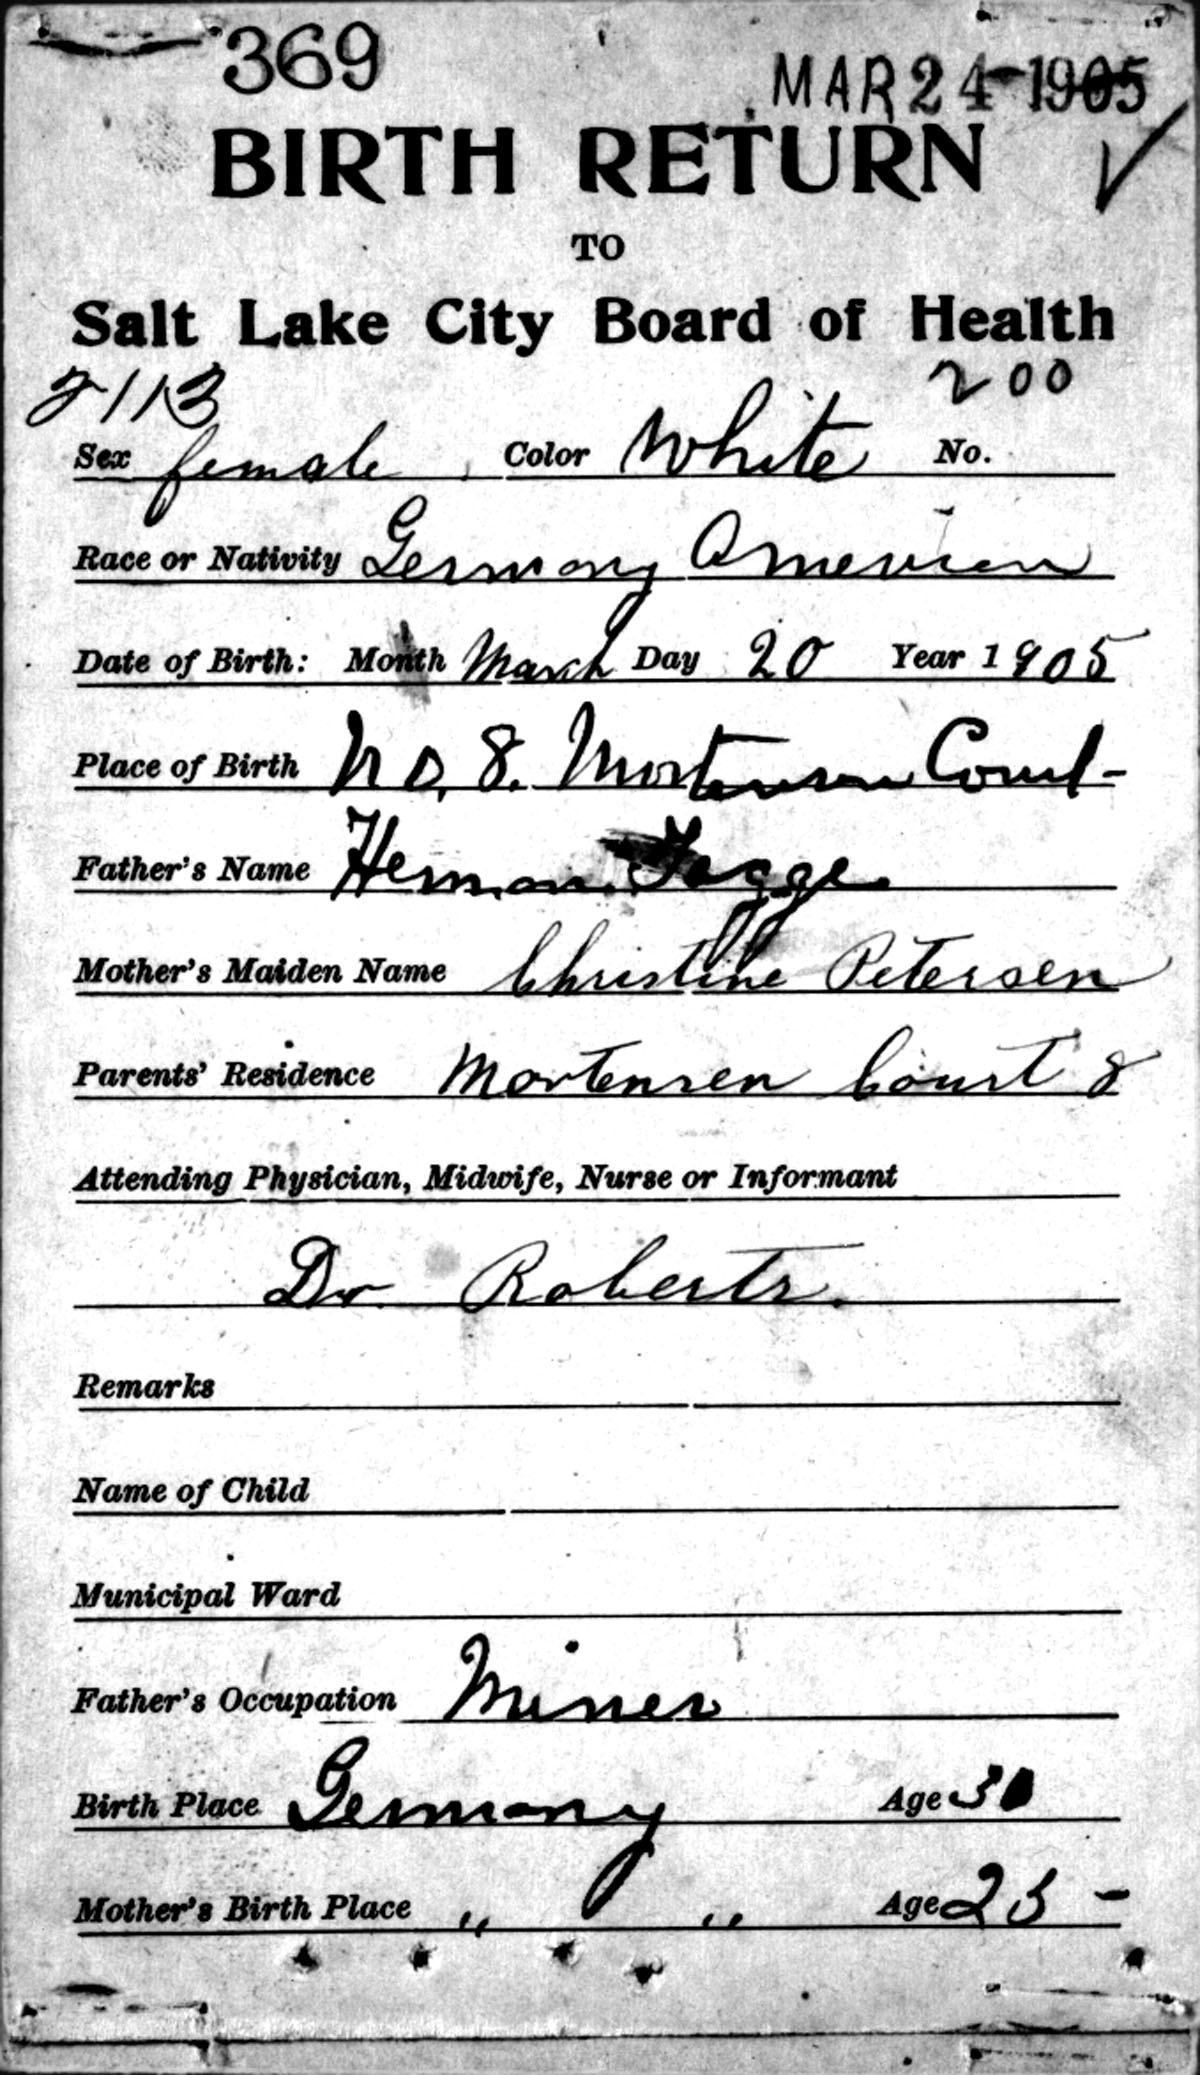 369
MAR 24 1905
BIRTH RETURN
TO
Salt Lake City Board of Health
2113 200
Sex female Color White No.
Race or Nativity Germany American
Date of Birth: Month March Day 20 Year 1905
Place of Birth No. 8. Mortensen Court-
Father's Name Herman
Mother's Maiden Name Christine Petersen
Parents' Residence Mortensen Court 8
Attending Physician, Midwife, Nurse or Informant
Dr. Roberts.
Remarks
Name of Child
Municipal Ward
Father's Occupation Miner
Birth Place Germany Age 30
Mother's Birth Place " " Age 23 -